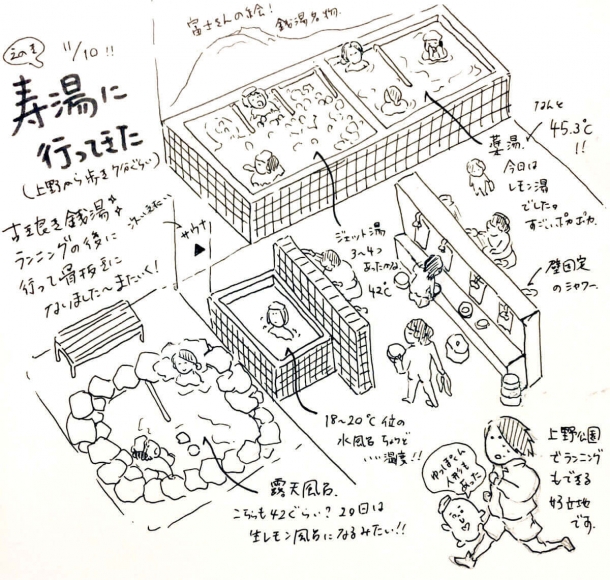 えのき
11/10!!
寿湯に
行ってきた
(上野から歩き7分ぐらい)
古き良き銭湯
ランニングの後に
行って骨抜きに
なりました〜また行く!
富士さんの絵!
銭湯名物
サウナ
ジェット湯
3〜4つ
あったかな
42℃
薬湯
なんと
45.3℃
!!
今日は
レモン湯
でした。
すごいポカポカ
壁固定
のシャワー
18〜20℃位の
水風呂 ちょうど
いい温度!!
露天風呂
こちらも42ぐらい?20日は
生レモン風呂になるみたい!!
ゆっぽくん
人形も
あった
上野公園
でランニング
もできる
好立地
です。